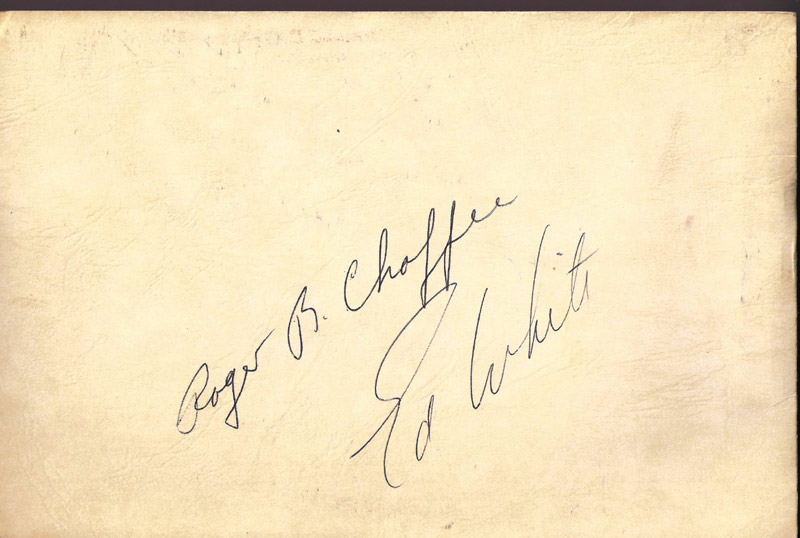 Roger B. Chaffee
Ed White